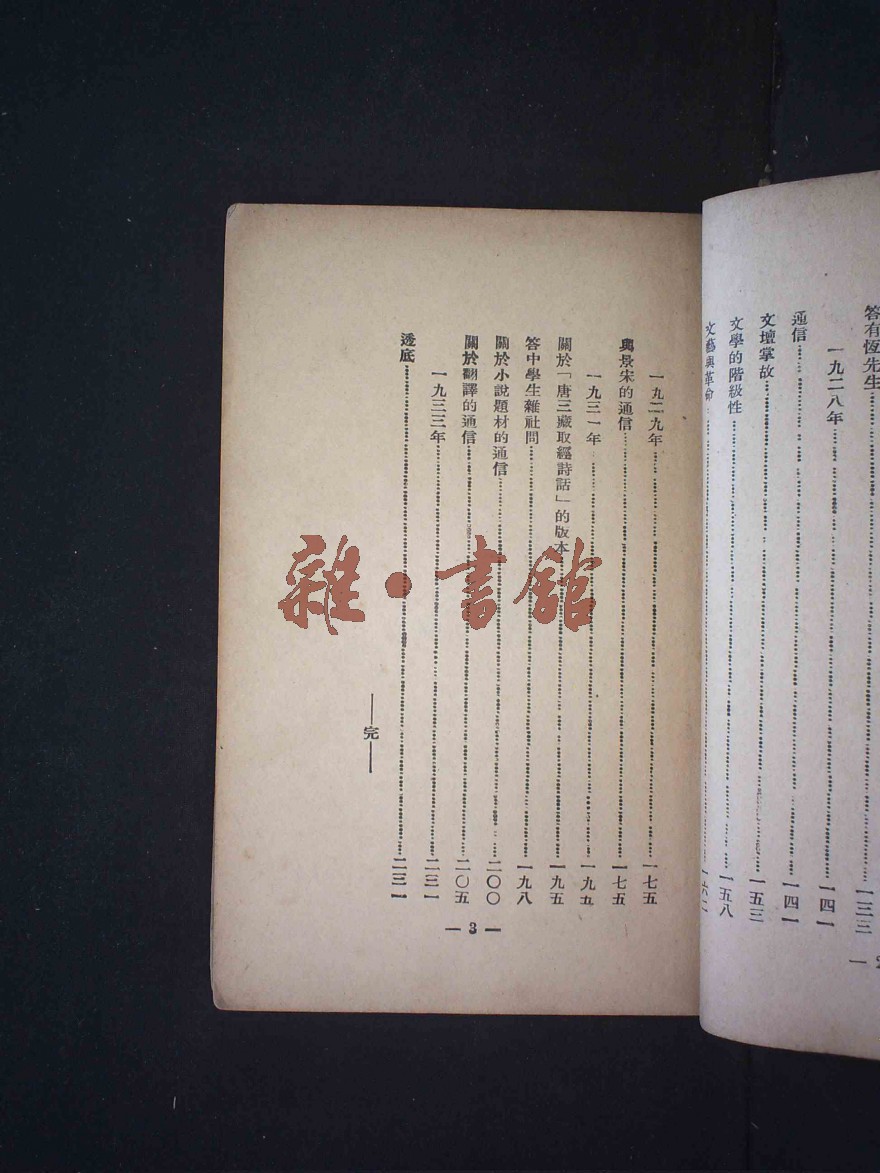 答有恆先生……一三三
一九二八年……一四一
通信……一四一
文壇掌故……一五三
文學的階級性……一五八
文藝與革命……一六二
一九二九年……一七五
與景宋的通信……一七五
一九三一年……一九五
關於「唐三藏取經詩話」的版本……一九五
答中學生雜社問……一九八
關於小說題材的通信……二〇〇
關於翻譯的通信……二〇五
一九三三年……二三一
透底……二三一
——完——
— 3 —
雜·書館